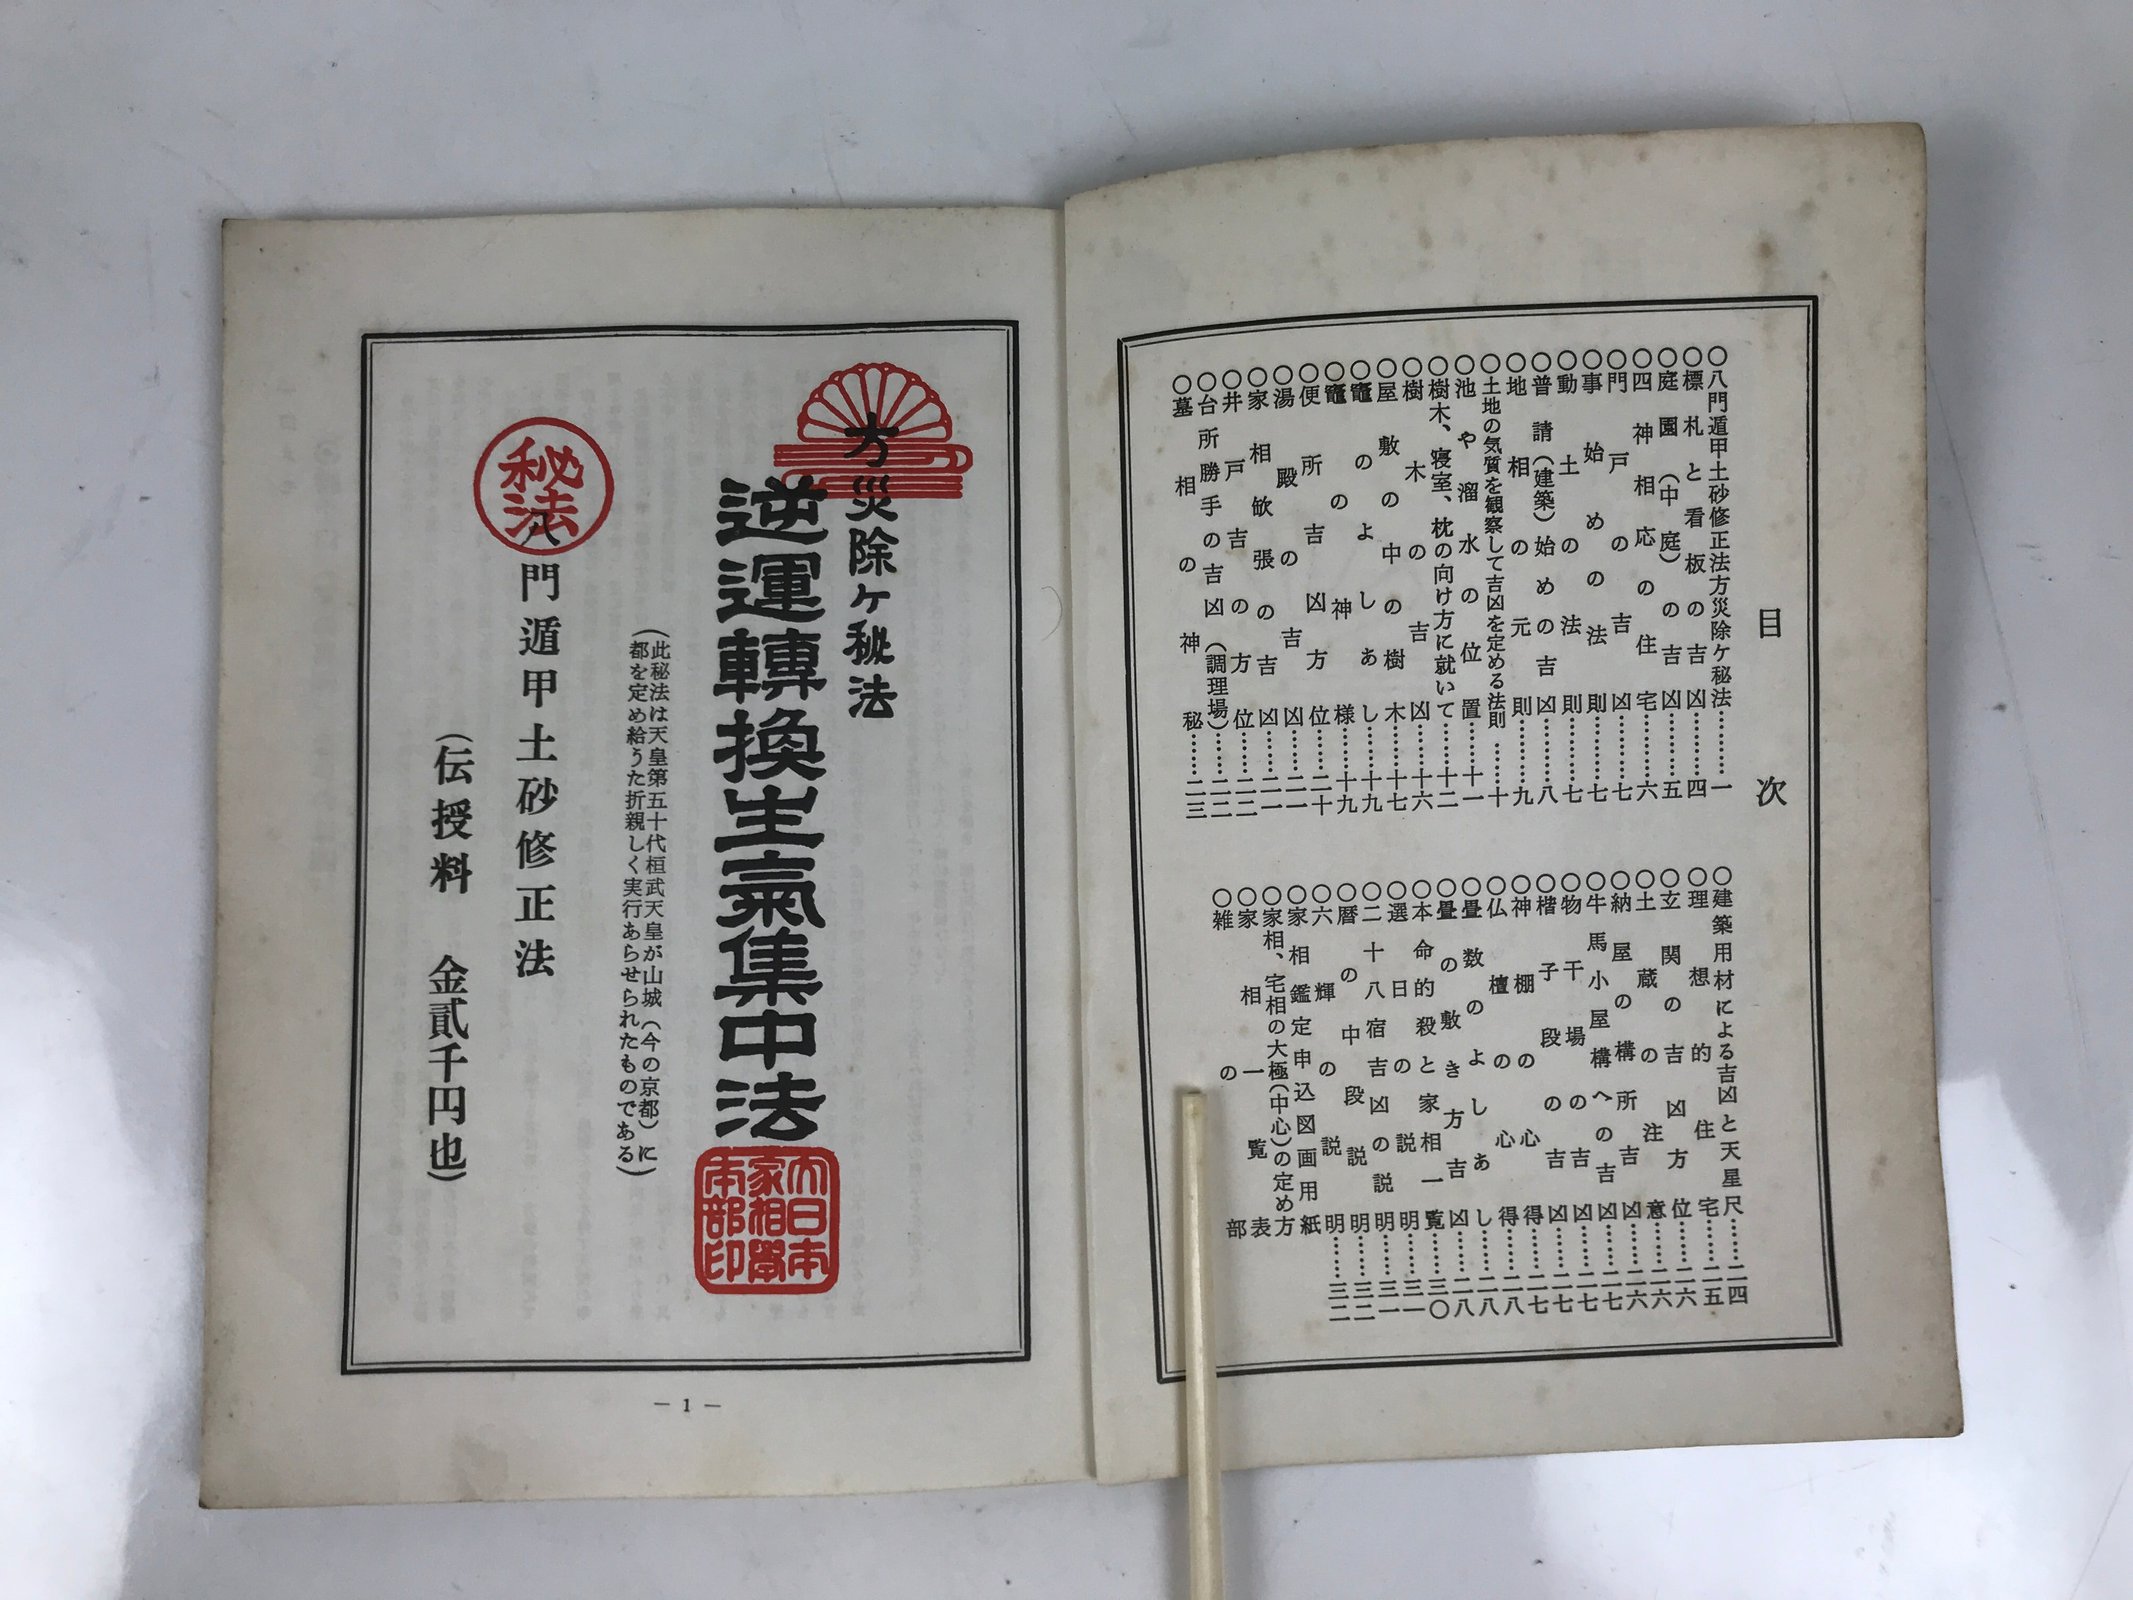 目次
○八門遁甲土砂修正法方災除ケ秘法…………一
○標札と看板の吉凶…………四
○庭園（中庭）の吉凶…………五
○四神相応の住宅…………六
○門戸の吉凶…………七
○事始めの法則…………七
○動土の法則…………七
○普請（建築）始めの吉凶…………八
○地相の元則…………九
○土地の気質を観察して吉凶を定める法則…………十
○池や溜水の位置…………十一
○樹木、寝室、枕の向け方に就いて…………十二
○樹木の吉凶…………十六
○屋敷の中の樹木…………十七
○竈のよしあし…………十九
○竈の神様…………十九
○便所吉凶方位…………二十
○湯殿の吉凶…………二一
○家相欽張の吉凶…………二一
○井戸吉の方位…………二二
○台所勝手の吉凶（調理場）…………二二
○墓相の神秘…………二三
○建築用材による吉凶と天星尺…………二四
○理想的住宅…………二五
○玄関の吉凶方位…………二六
○土蔵の注意…………二六
○納屋の構所吉凶…………二六
○牛馬小屋構への吉凶…………二七
○物干場の吉凶…………二七
○楷子段の吉凶…………二七
○神棚の心得…………二七
○仏檀の心得…………二八
○畳数のよしあし…………二八
○畳の敷き方吉凶…………二八
○本命的殺と家相一覧…………三〇
○選日の説明…………三一
○二十八宿吉凶の説明…………三一
○暦の中段説明…………三二
○六輝の説明…………三二
○家相鑑定申込図画用紙
○家相、宅相の大極（中心）の定め方
○家相一覧表
○雑の部
方災除ヶ秘法
逆運轉換生氣集中法
大日本家相學本部印
（此秘法は天皇第五十代桓武天皇が山城（今の京都）に
都を定め給うた折親しく実行あらせられたものである）
秘法
八門遁甲土砂修正法
（伝授料　金貳千円也）
— 1 —